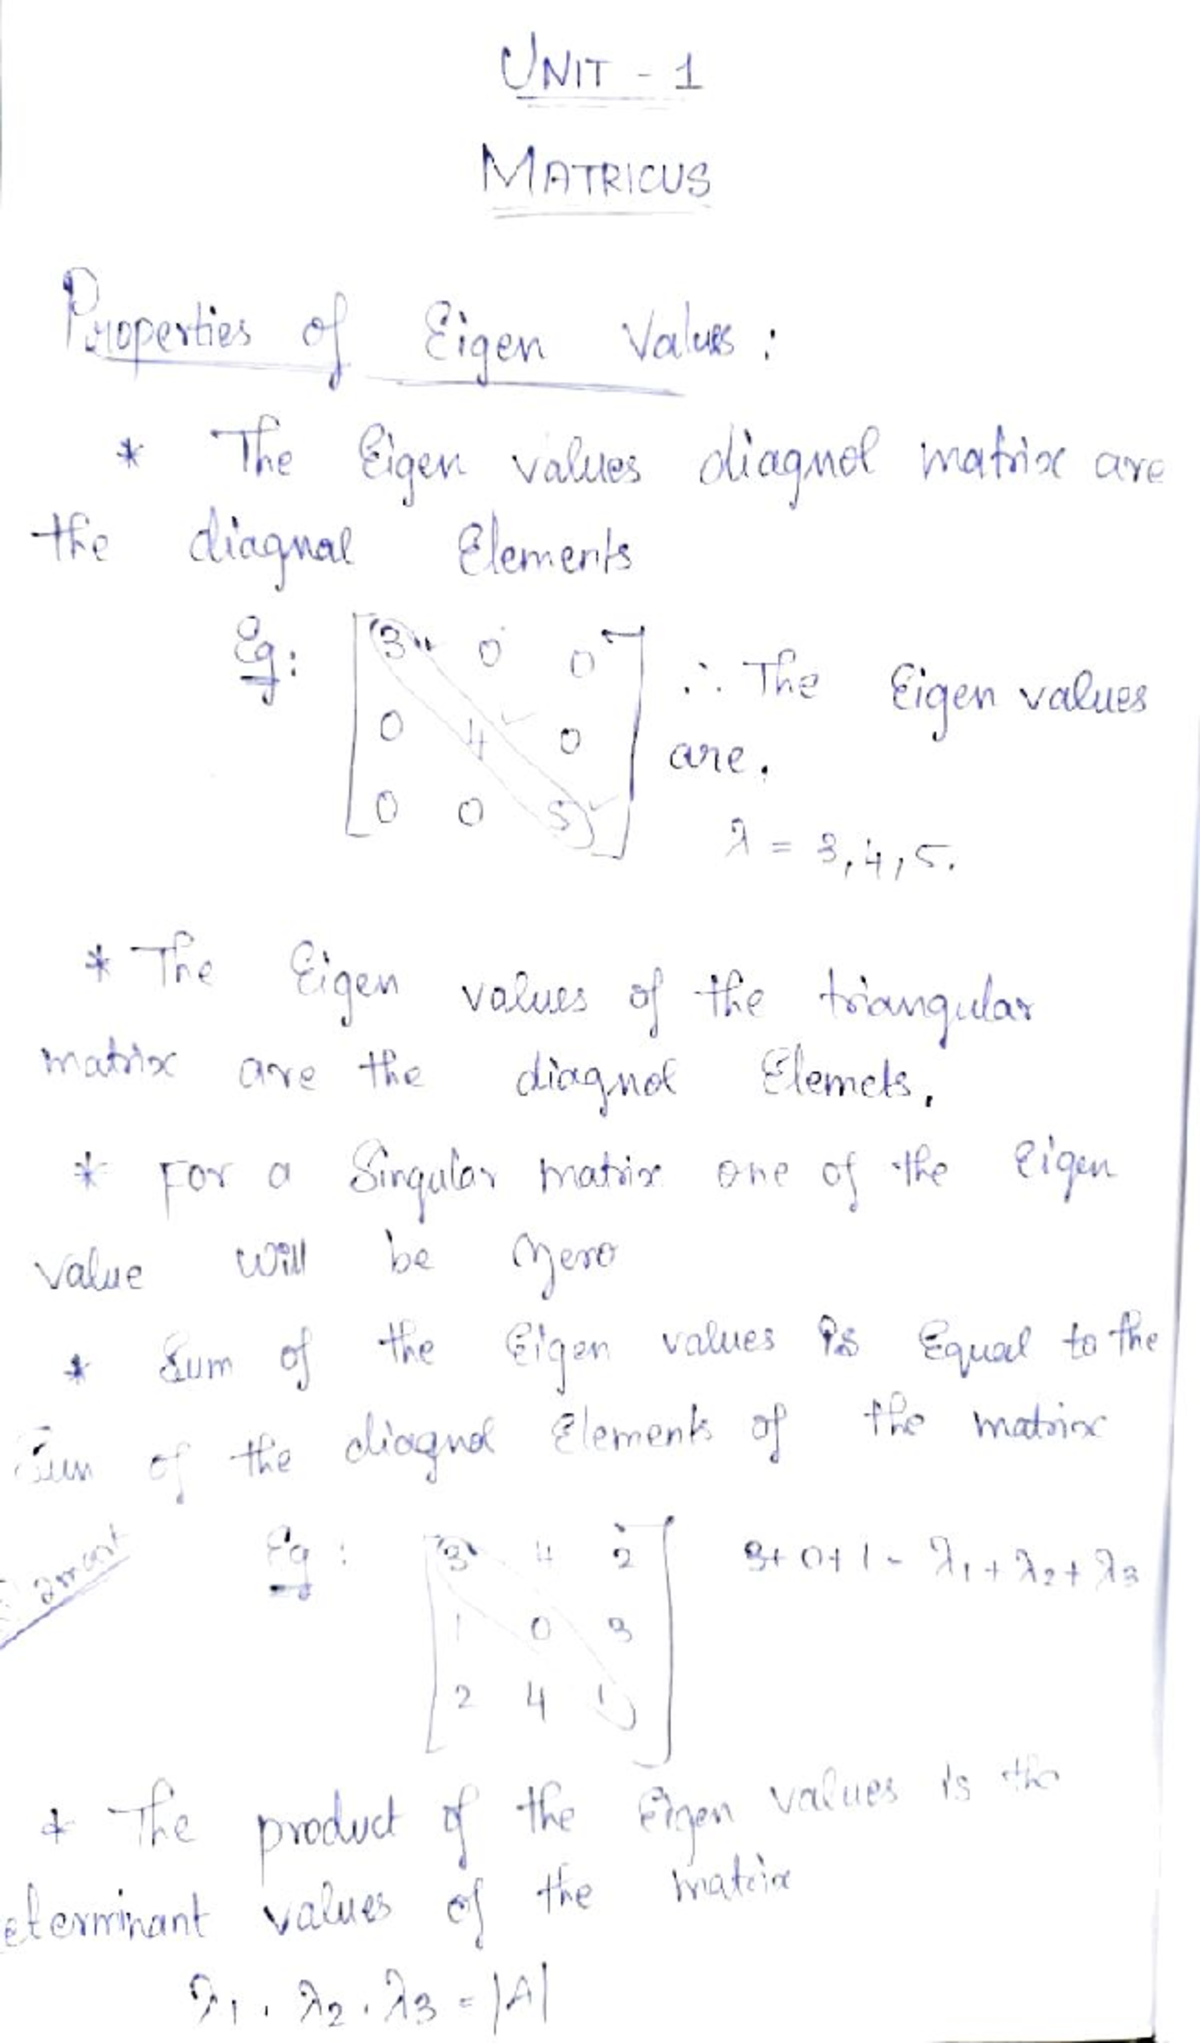 UNIT - 1
MATRICUS
Properties of Eigen Values :
* The Eigen values diagnol matrix are
the diagnal Elements
Eg: [3 0 0
∴ The Eigen values
0 4 0
are.
0 0 5]
λ = 3,4,5.
* The Eigen values of the triangular
matrix are the diagnol Elemets.
* For a Singular matrix one of the Eigen
value will be zero
* Sum of the Eigen values is Equal to the
Sum of the diagnol Elements of the matrix
Eg : [3 4 2 3+0+1 = λ1+λ2+λ3
1 0 3
2 4 1]
* The product of the Eigen values is the
eterminant values of the matrix
λ1 . λ2 . λ3 = |A|